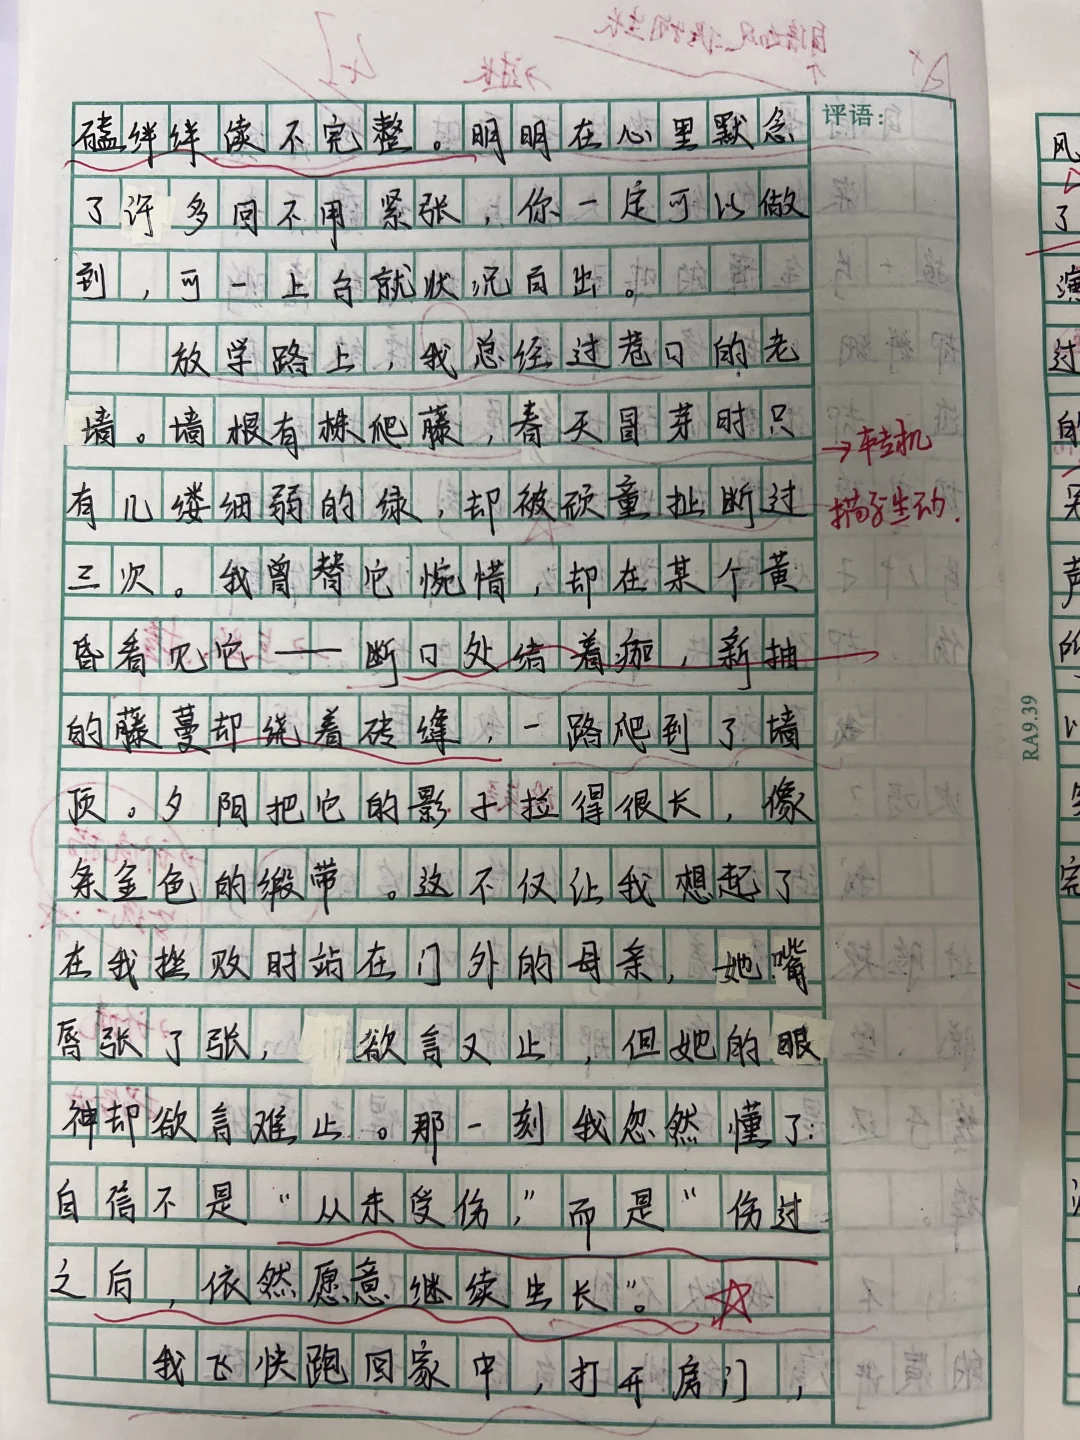 评语：
磕绊绊读不完整。明明在心里默念
了许多回不用紧张，你一定可以做
到，可一上台就状况百出。
放学路上，我总经过巷口的老
墙。墙根有株爬藤，春天冒芽时只
有几缕细弱的绿，却被顽童扯断过
三次。我曾替它惋惜，却在某个黄
昏看见它——断口处结着痂，新抽
的藤蔓却绕着砖缝，一路爬到了墙
顶。夕阳把它的影子拉得很长，像
条金色的缎带。这不仅让我想起了
在我挫败时站在门外的母亲，她嘴
唇张了张，欲言又止，但她的眼
神却欲言难止。那一刻我忽然懂了：
自信不是“从未受伤，”而是“伤过
之后，依然愿意继续生长”。
我飞快跑回家中，打开房门，
→转机
描写生动.
RA9.39